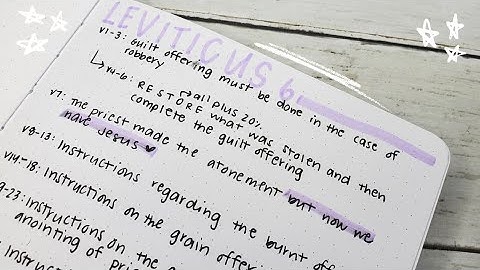 LEVITICUS 6
v1-3: Guilt offering must be done in the case of
robbery
all plus 20%
v4-6: RESTORE what was stolen and then
complete the guilt offering
v7: The priest made the atonement but now we
have Jesus ♥
v8-13: Instructions regarding the burnt
v14-18: Instructions on the grain
-23: Instructions on the
anointing of
Instructions